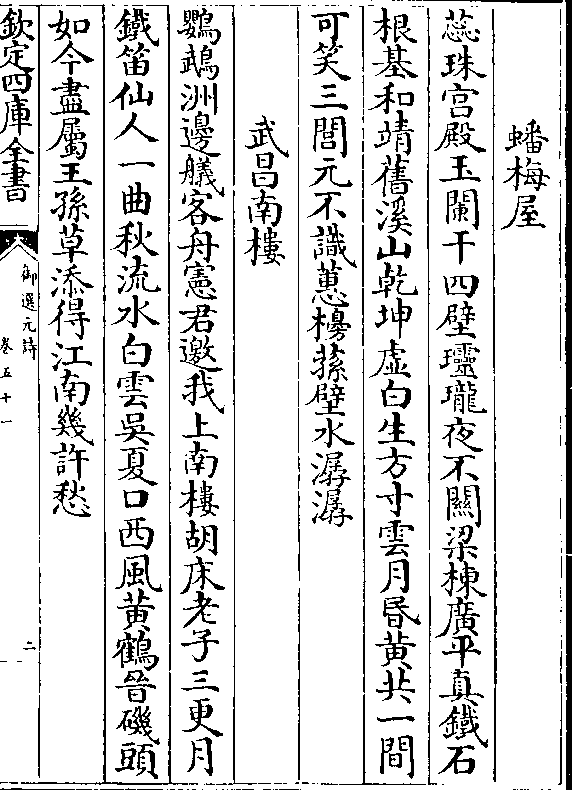 蟠梅屋
蕊珠宫殿玉闌干四壁瓏瓏夜不關梁棟廣平真鐵石
根基和靖舊溪山乾坤虚白生方寸雲月昏黄共一間
可笑三閭元不識蕙櫋蓀壁水潺潺
武昌南樓
鸚鵡洲邊艤客舟憲君邀我上南樓胡床老子三更月
鐵笛仙人一曲秋流水白雲吳夏口西風黄鶴晉磯頭
如今盡屬王孫草添得江南幾許愁
欽定四庫全書
御選元詩
卷五十一
二